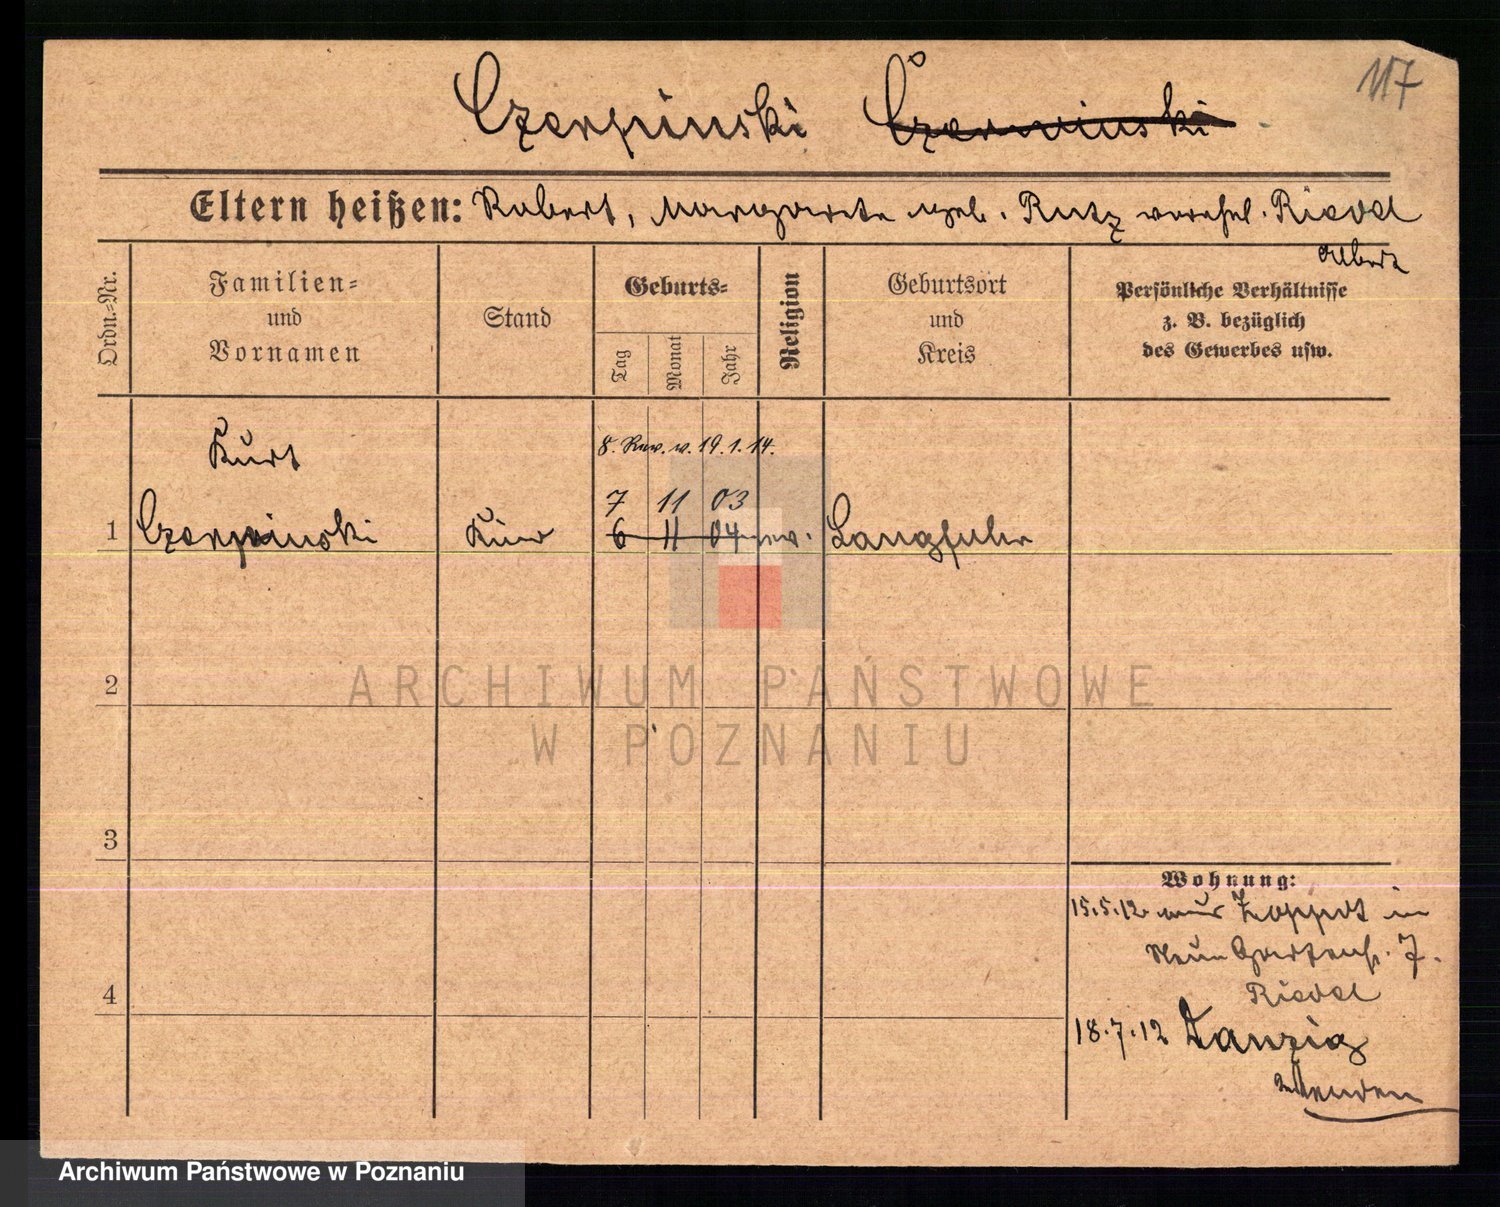 117
Czerpinski Czerwinski
Eltern heißen: Robert, Margarete geb. Rutz verehel. Riedel
Albert
Ordn.-Nr.
Familien-
und
Vornamen
Stand
Geburts-
Tag
Monat
Jahr
Religion
Geburtsort
und
Kreis
Persönliche Verhältnisse
z. B. bezüglich
des Gewerbes usw.
Kurt
8. Rev. v. 19.1.14.
7 11 03
1 Czerpinski Kind 6 11 04 ev. Langfuhr
2
ARCHIWUM PAŃSTWOWE
W POZNANIU
3
Wohnung:
15.5.12 aus Zoppot in
Neue Gartenstr. 7.
4
Riedel
18.7.12 Danzig
Archiwum Państwowe w Poznaniu